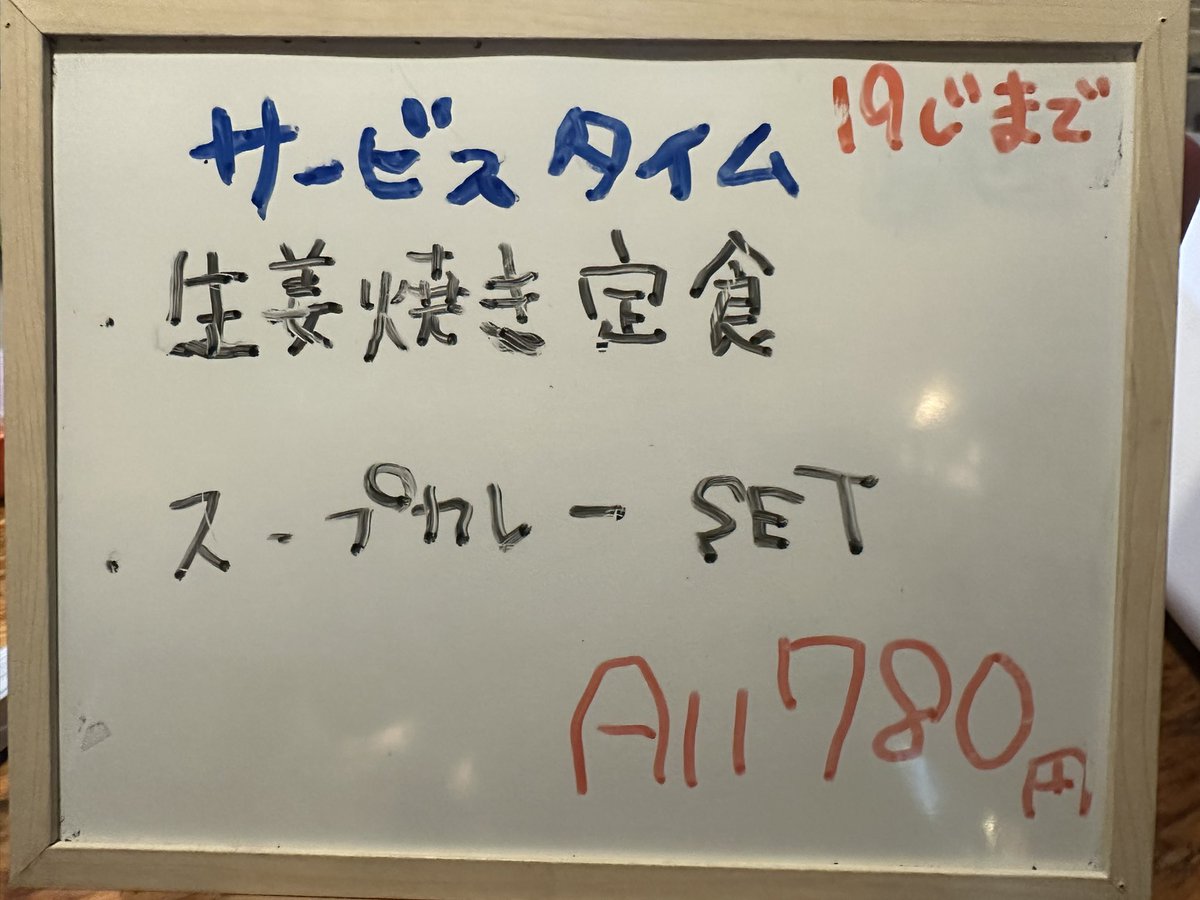 サービスタイム 19じまで
・生姜焼き定食
・スープカレー SET
All 780円